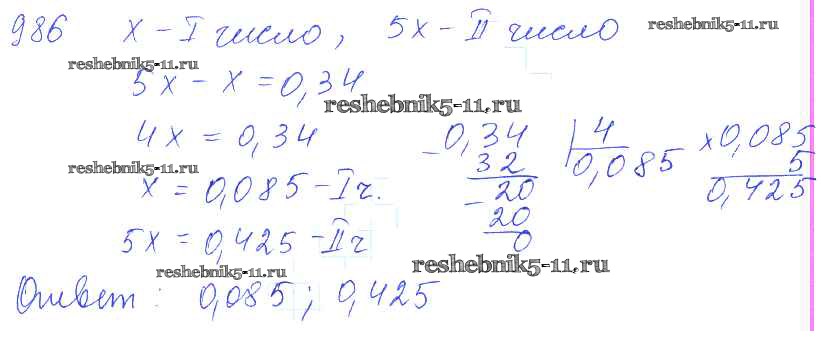 986 x – I число, 5x – II число reshebnik5-11.ru
reshebnik5-11.ru
5x – x = 0,34
reshebnik5-11.ru
4x = 0,34
reshebnik5-11.ru
x = 0,085 – I ч.
5x = 0,425 – II ч
– 0,34 | 4
32 0,085
– 20
20
0
x 0,085
5
0,425
reshebnik5-11.ru
reshebnik5-11.ru
Ответ: 0,085; 0,425